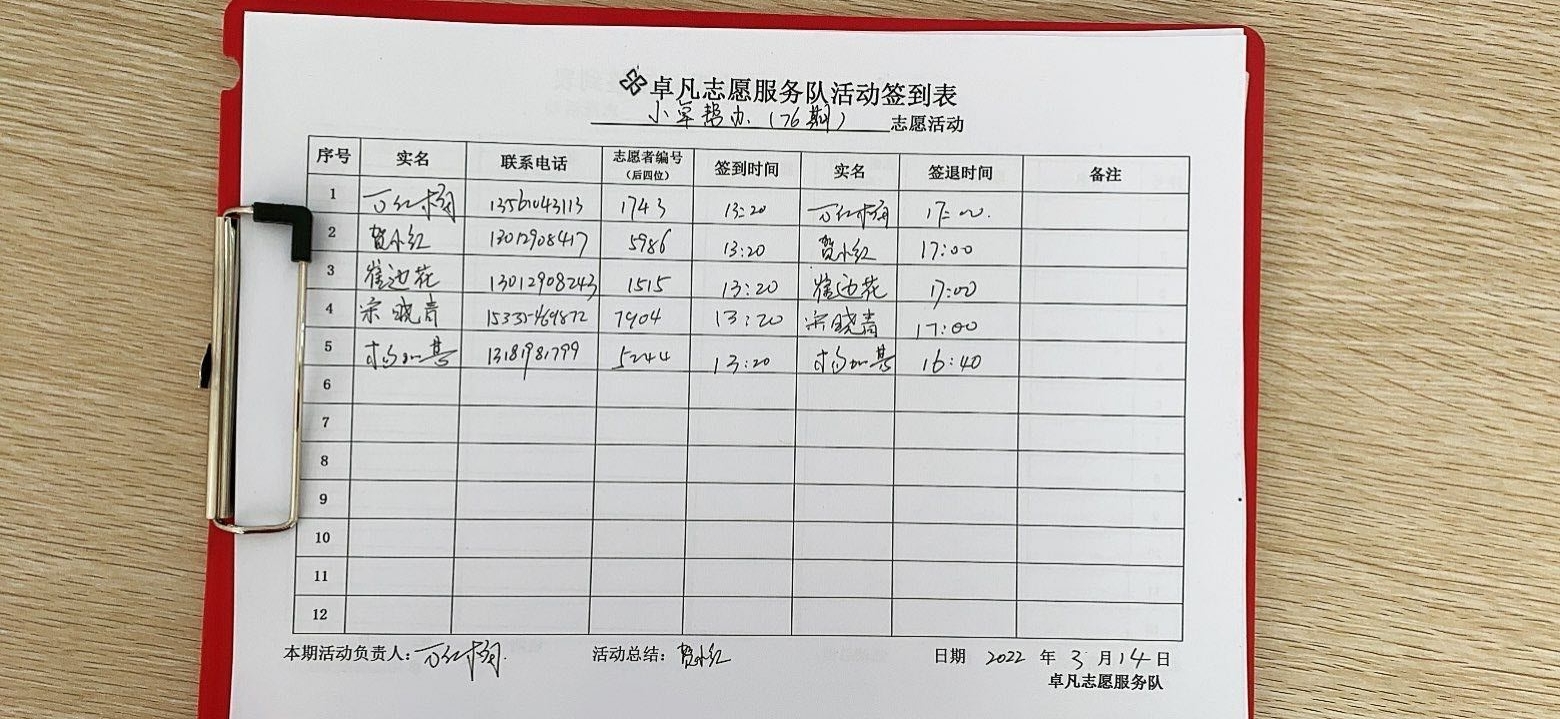 卓凡志愿服务队活动签到表
小草帮办（76期） 志愿活动
序号 实名 联系电话 志愿者编号（后四位） 签到时间 实名 签退时间 备注
1 万红梅 13561043113 1743 13:20 万红梅 17:00.
2 贺小红 13012908417 5986 13:20 贺小红 17:00
3 崔迎花 13012908243 1515 13:20 崔迎花 17:00
4 宋晓青 7904 13:20 宋晓青 17:00
5 13181981799 5244 13:20 16:40
6
7
8
9
10
11
12
本期活动负责人：万红梅. 活动总结：贺小红 日期 2022 年 3 月 14 日
卓凡志愿服务队